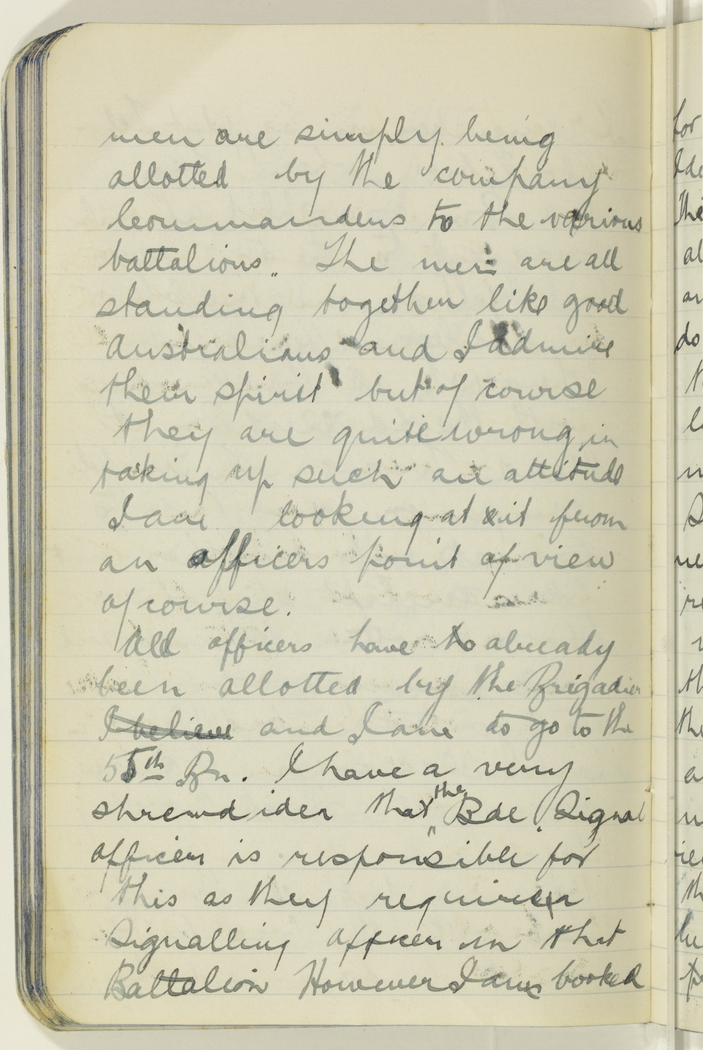 men are simply being
allotted by the company
Commanders to the various
battalions. The men are all
standing together like good
Australians and I admire
their spirit but of course
they are quite wrong in
taking up such an attitude
I am looking at it from
an officers point of view
of course.
All officers have to already
been allotted by the Brigadier
I believe and I am to go to the
55th Bn. I have a very
shrewd idea that the Bde. Signal
officer is responsible for
this as they require a
Signalling officer in that
Battalion However I am booked
for
the
al
an
do